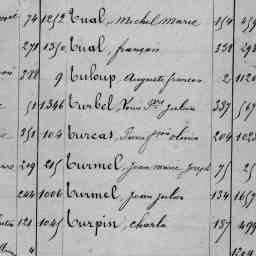 74 1252 Tual, Michel Marie 154
271 1350 Tual, françois 338
288 9 Tuloup, Auguste francois 2 1120
51 1346 Turbel, Louis Julien 337 567
351 104 Turcas, Pierre olivier 204 1023
209 215 Turmel, Jean marie Joseph 75
244 1006 Turmel, jean julien 134 1657
121 1045 Turpin, charles 187 499